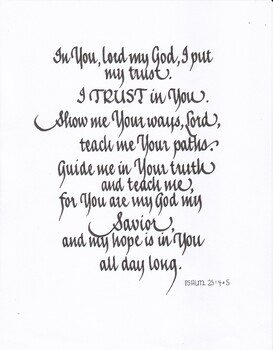 In You, Lord my God, I put
my trust.
I TRUST in You.
Show me Your ways, Lord,
teach me Your paths.
Guide me in Your truth
and teach me,
for You are my God my
Savior,
and my hope is in You
all day long.
PSALM 25:4+5